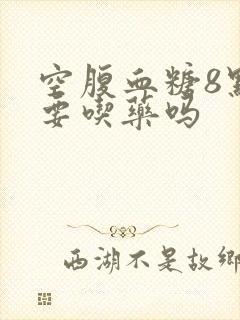 空腹血糖8點
要喫藥吗
西湖不是故鄉